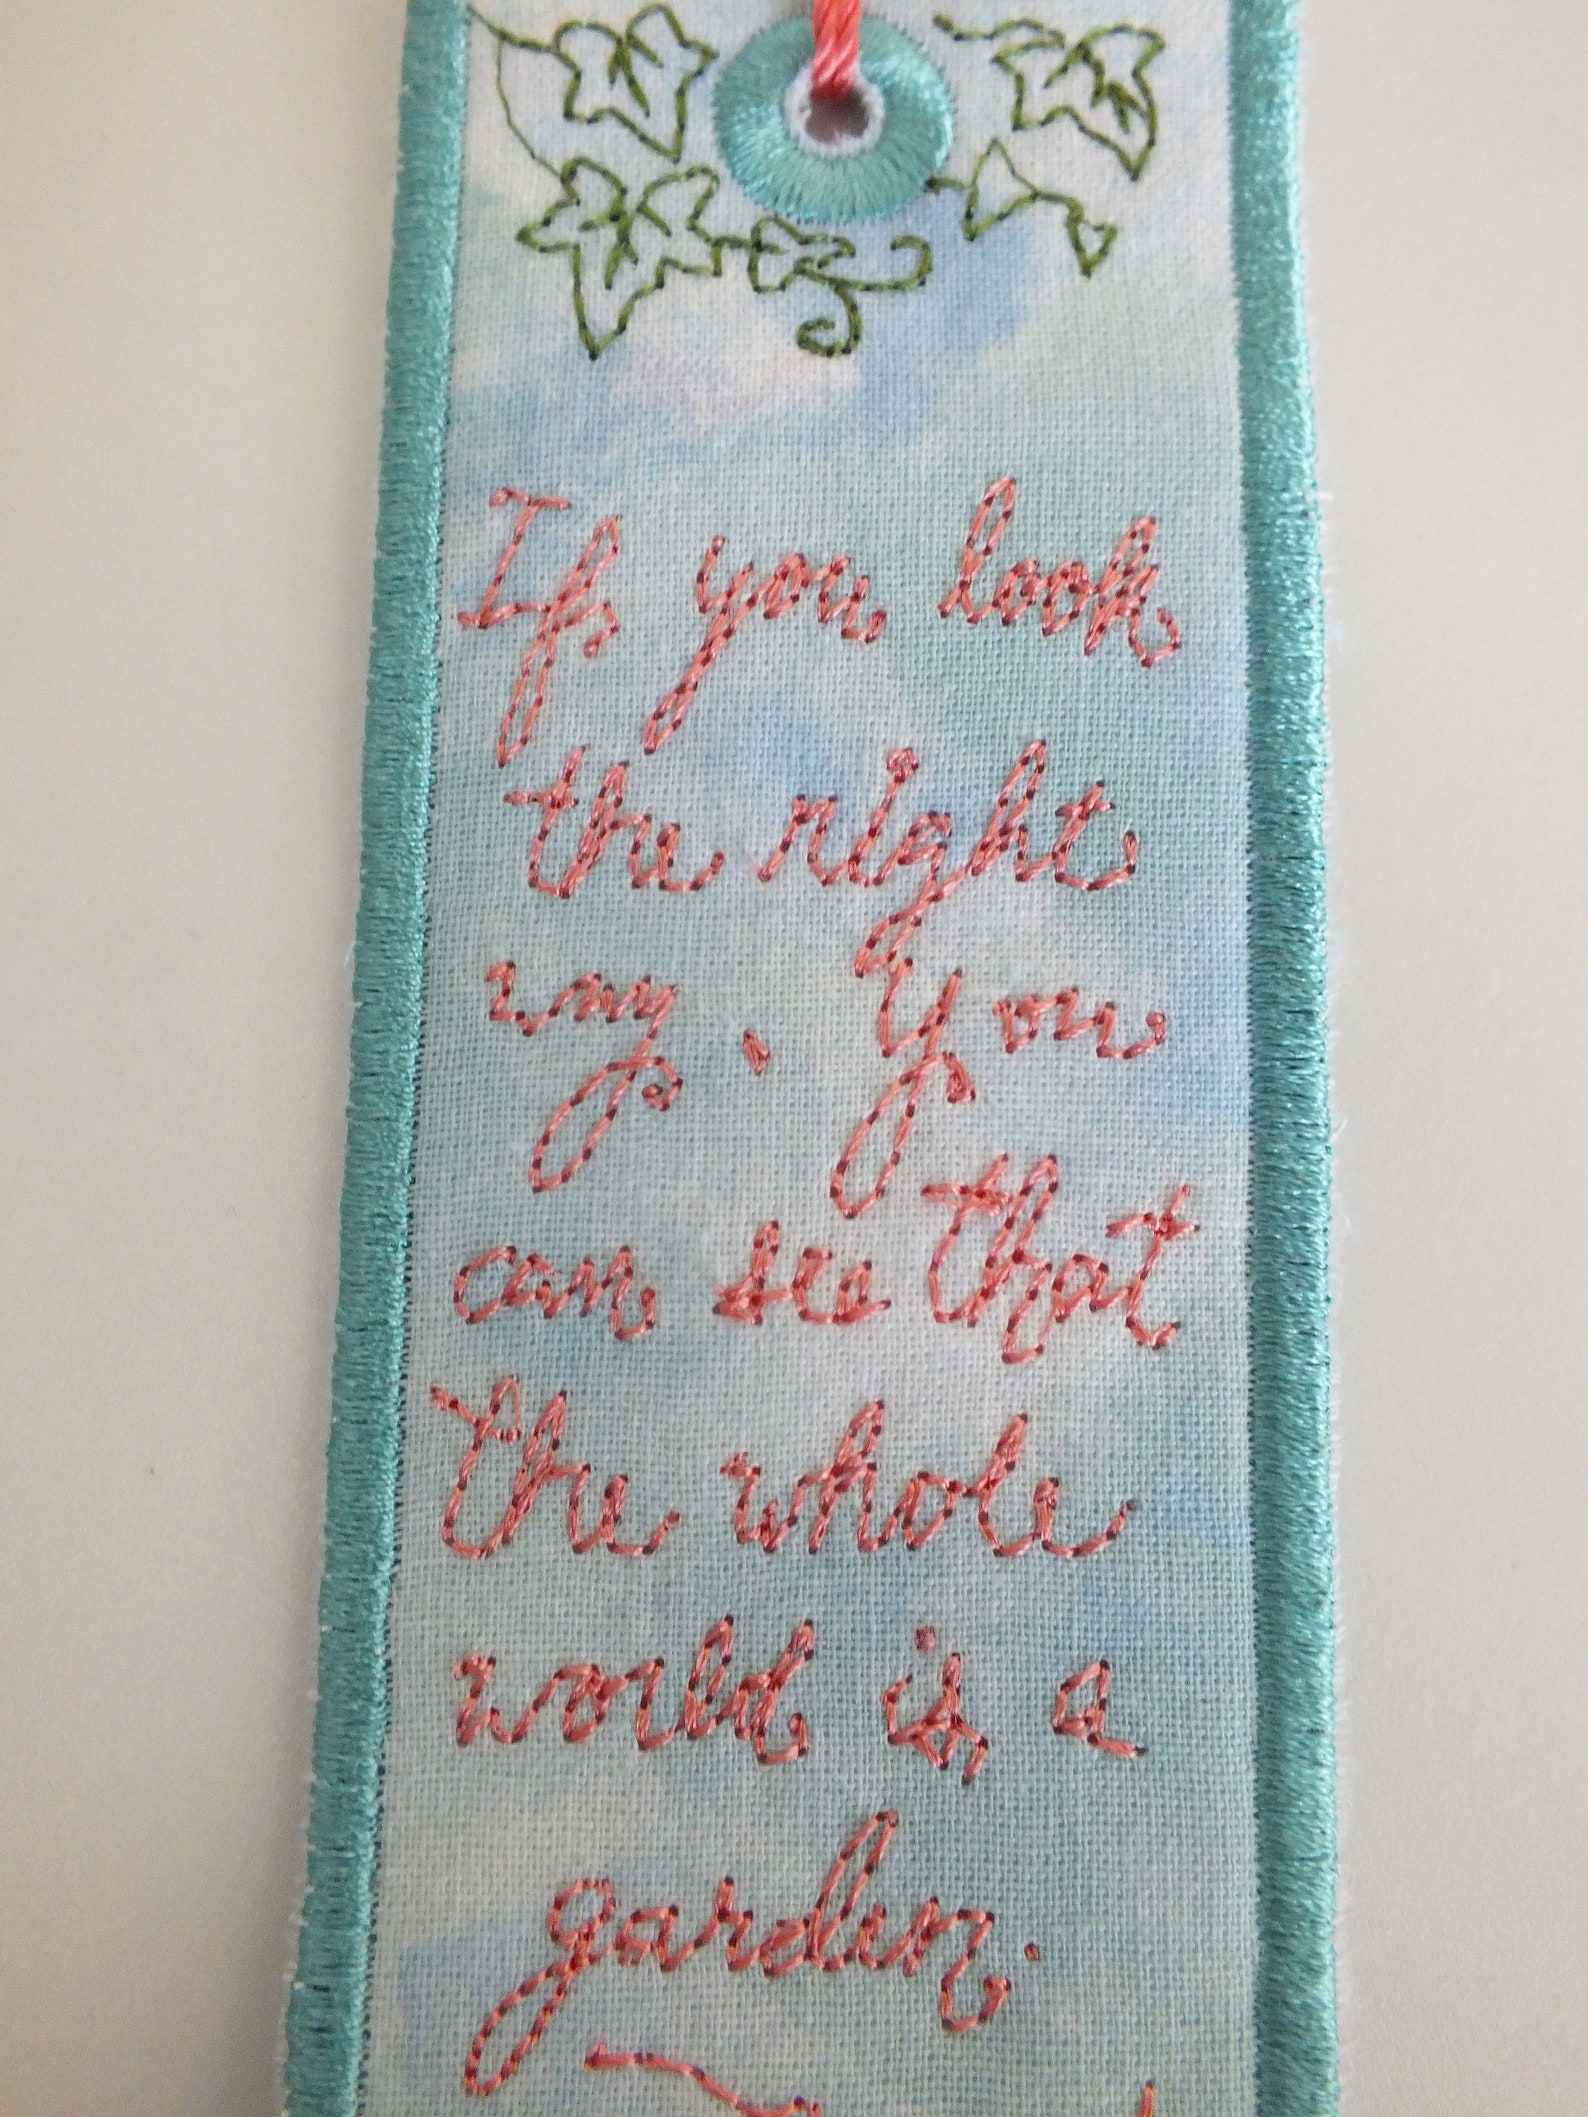 If you look
the right
way, you
can see that
the whole
world is a
garden.